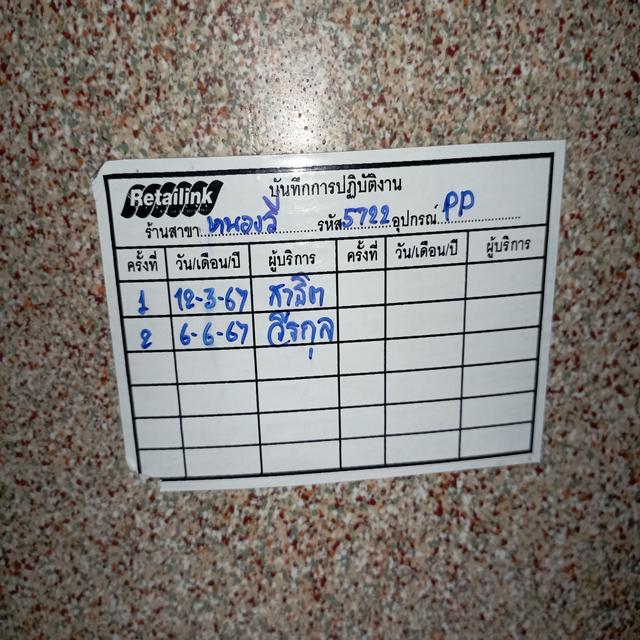 Retailink บันทึกการปฏิบัติงาน
ร้านสาขา หนองวี รหัส 5722 อุปกรณ์ PP
ครั้งที่ วัน/เดือน/ปี ผู้บริการ ครั้งที่ วัน/เดือน/ปี ผู้บริการ
1 12-3-67 สาลิต
2 6-6-67 ธีรกุล